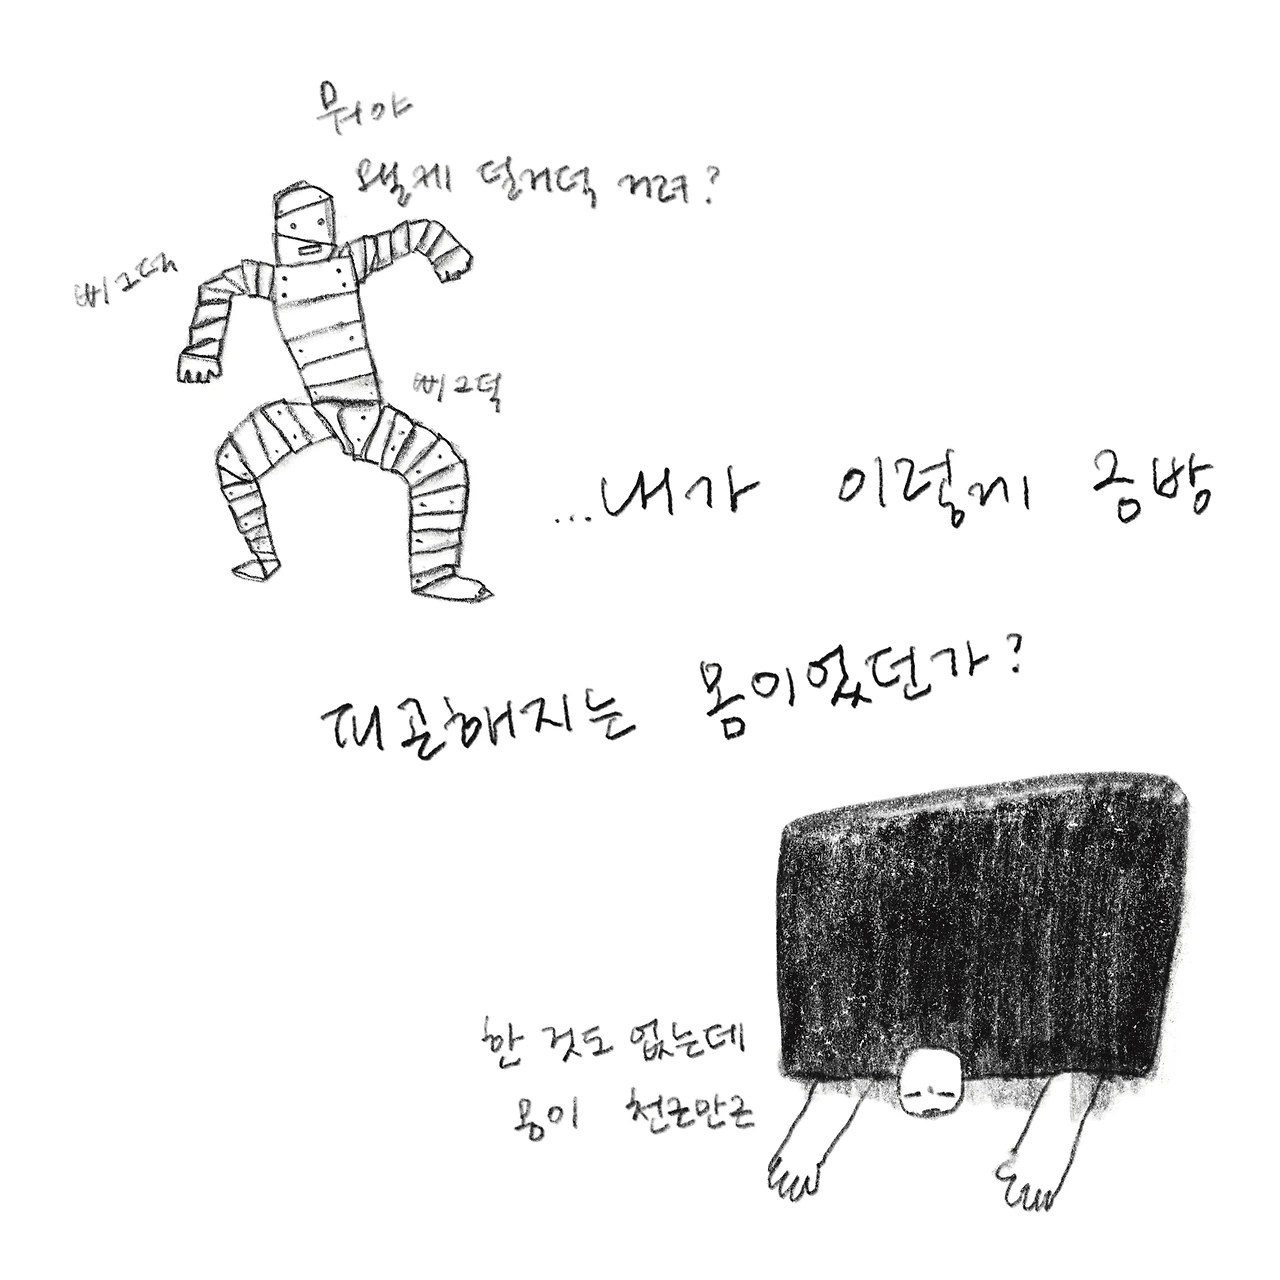 뭐야
왤케 덜거덕 거려?
삐그덕
삐그덕
...내가 이렇게 금방
피곤해지는 몸이었던가?
한 것도 없는데
몸이 천근만근